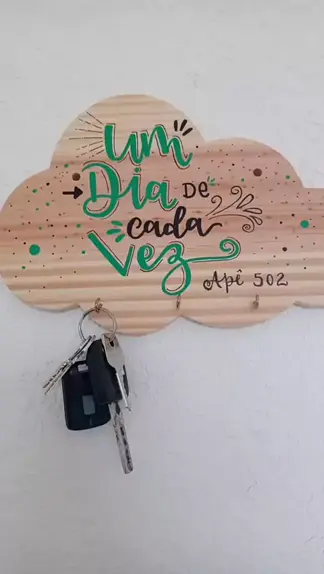 um
Dia DE
cada
Vez
Apê 502